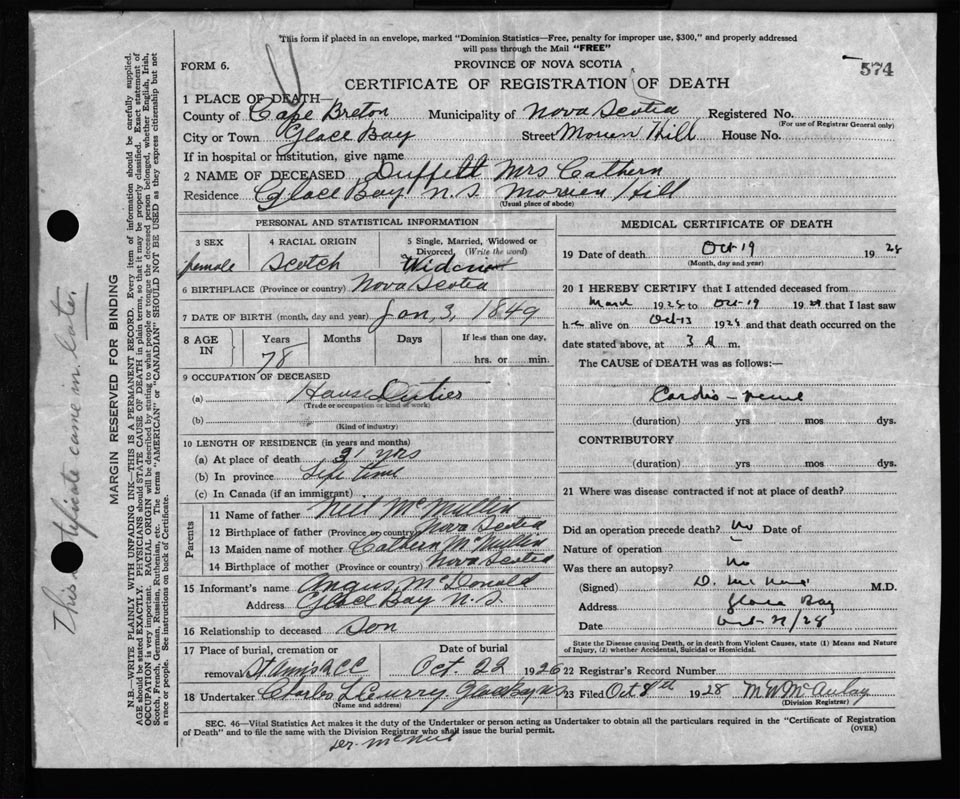 This form if placed in an envelope, marked "Dominion Statistics—Free, penalty for improper use, $300," and properly addressed
will pass through the Mail "FREE"
FORM 6.
PROVINCE OF NOVA SCOTIA
574
CERTIFICATE OF REGISTRATION OF DEATH
1 PLACE OF DEATH—
County of Cape Breton Municipality of Nova Scotia Registered No.
(For use of Registrar General only)
City or Town Glace Bay Street Morien Hill House No.
If in hospital or institution, give name
2 NAME OF DECEASED Duffett Mrs Cathern
Residence Glace Bay N.S Morien Hill
(Usual place of abode)
PERSONAL AND STATISTICAL INFORMATION
3 SEX 4 RACIAL ORIGIN 5 Single, Married, Widowed or
Divorced, (Write the word)
female Scotch Widow
6 BIRTHPLACE (Province or country) Nova Scotia
7 DATE OF BIRTH (month, day and year) Jan, 3, 1849
8 AGE IN Years Months Days If less than one day,
78 hrs. or min.
9 OCCUPATION OF DECEASED
(a) House Duties
(Trade or occupation or kind of work)
(b)
(Kind of industry)
10 LENGTH OF RESIDENCE (in years and months)
(a) At place of death 31 yrs
(b) In province Life time
(c) In Canada (if an immigrant)
Parents
11 Name of father Neil McMullin
12 Birthplace of father (Province or country) Nova Scotia
13 Maiden name of mother Cathern McMullin
14 Birthplace of mother (Province or country) Nova Scotia
15 Informant's name Angus McDonald
Address Glace Bay N.S.
16 Relationship to deceased Son
17 Place of burial, cremation or Date of burial
removal Oct. 22 1926
18 Undertaker Charles L Curry Glace Bay NS
(Name and address)
MEDICAL CERTIFICATE OF DEATH
19 Date of death Oct 19 1928
(Month, day and year)
20 I HEREBY CERTIFY that I attended deceased from
March 1928 to Oct-19 19 that I last saw
h alive on Oct 13 1928 and that death occurred on the
date stated above, at 3 A m.
The CAUSE of DEATH was as follows:
Cardio-renal
(duration) yrs mos dys.
CONTRIBUTORY
(duration) yrs mos dys.
21 Where was disease contracted if not at place of death?
Did an operation precede death? no Date of
Nature of operation
Was there an autopsy? no
(Signed) D. M.D.
Address Glace Bay
Date 21/28
State the Disease causing Death, or in death from Violent Causes, state (1) Means and Nature
of Injury, (2) whether Accidental, Suicidal or Homicidal.
22 Registrar's Record Number
23 Filed Oct 8th 1928 M W McAulay
(Division Registrar)
SEC. 46—Vital Statistics Act makes it the duty of the Undertaker or person acting as Undertaker to obtain all the particulars required in the "Certificate of Registration
of Death" and to file the same with the Division Registrar who shall issue the burial permit.
(OVER)
per McNeil
MARGIN RESERVED FOR BINDING
N.B.—WRITE PLAINLY WITH UNFADING INK—THIS IS A PERMANENT RECORD. Every item of information should be carefully supplied.
AGE should be stated EXACTLY. PHYSICIANS should STATE CAUSE OF DEATH in plain terms, so that it may be properly classified. Exact statement of
OCCUPATION is very important. RACIAL ORIGIN will be described by stating to what people or tongue the deceased person belonged, whether English, Irish,
Scotch, French, German, Russian, Ruthenian, etc. The terms "AMERICAN" or "CANADIAN" SHOULD NOT BE USED as they express citizenship but not
a race or people. See instructions on back of Certificate.
This certificate came in later.